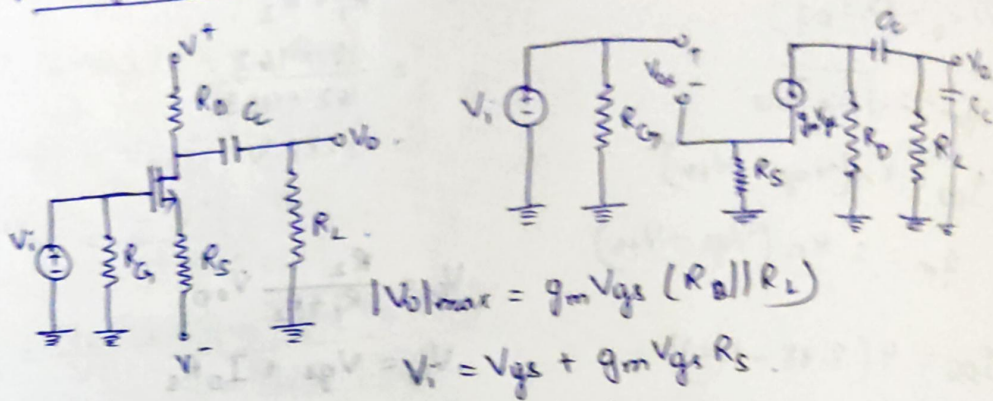 V⁺
R_D C_C
V_O
V_i
R_G
R_S
R_L
V⁻
V_i
R_G
V_gs
+
-
R_S
g_m V_gs
R_D
C_C
R_L
V_O
|V_O|max = g_m V_gs (R_D || R_L)
V_i = V_gs + g_m V_gs R_S